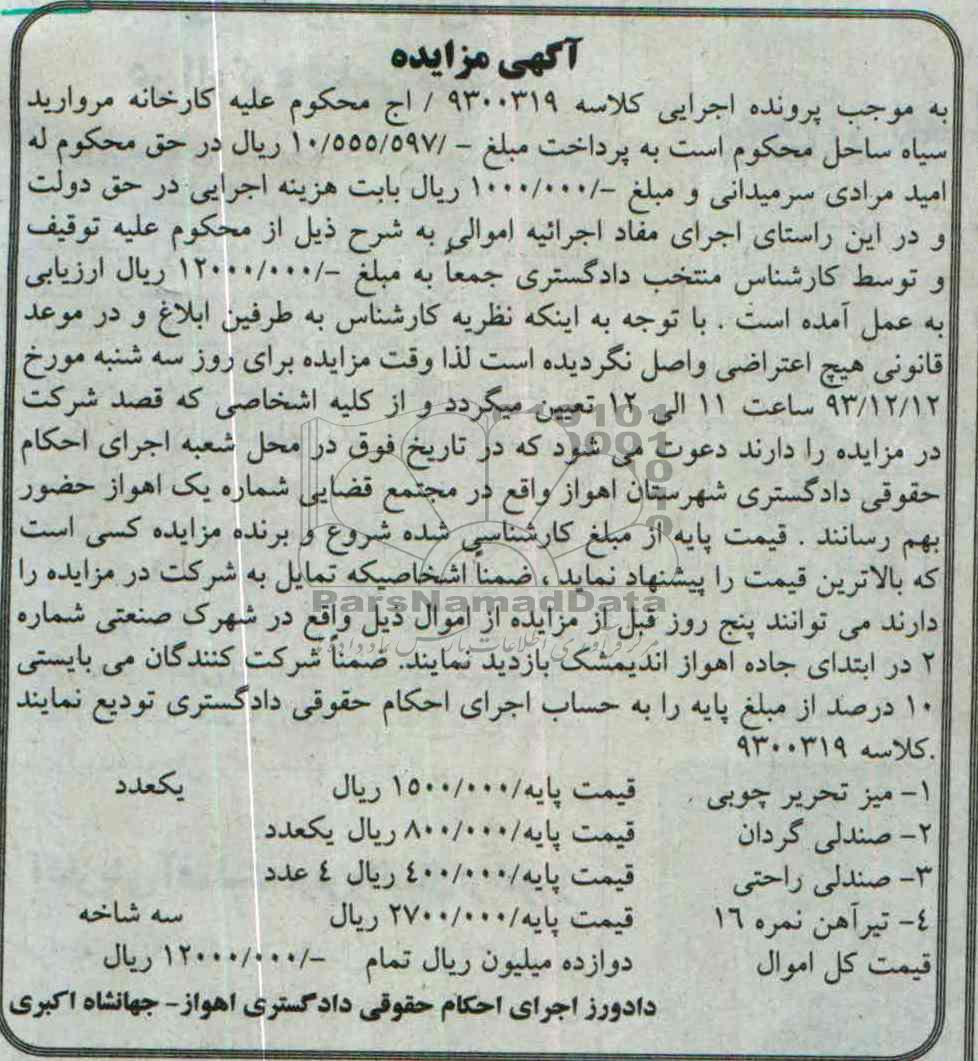 آگهی مزایده
به موجب پرونده اجرایی کلاسه ۹۳۰۰۳۱۹ / اج محکوم علیه کارخانه مروارید
سیاه ساحل محکوم است به پرداخت مبلغ - /۱۰/۵۵۵/۵۹۷ ریال در حق محکوم له
امید مرادی سرمیدانی و مبلغ -/۱۰۰۰/۰۰۰ ریال بابت هزینه اجرایی در حق دولت
و در این راستای اجرای مفاد اجرائیه اموالی به شرح ذیل از محکوم علیه توقیف
و توسط کارشناس منتخب دادگستری جمعاً به مبلغ -/۱۲۰۰۰/۰۰۰ ریال ارزیابی
به عمل آمده است . با توجه به اینکه نظریه کارشناس به طرفین ابلاغ و در موعد
قانونی هیچ اعتراضی واصل نگردیده است لذا وقت مزایده برای روز سه شنبه مورخ
۹۳/۱۲/۱۲ ساعت ۱۱ الی ۱۲ تعیین میگردد و از کلیه اشخاصی که قصد شرکت
در مزایده را دارند دعوت می شود که در تاریخ فوق در محل شعبه اجرای احکام
حقوقی دادگستری شهرستان اهواز واقع در مجتمع قضایی شماره یک اهواز حضور
بهم رسانند . قیمت پایه از مبلغ کارشناسی شده شروع و برنده مزایده کسی است
که بالاترین قیمت را پیشنهاد نماید ، ضمناً اشخاصیکه تمایل به شرکت در مزایده را
ParsNamadData
دارند می توانند پنج روز قبل از مزایده از اموال ذیل واقع در شهرک صنعتی شماره
۲ در ابتدای جاده اهواز اندیمشک بازدید نمایند. ضمناً شرکت کنندگان می بایستی
۱۰ درصد از مبلغ پایه را به حساب اجرای احکام حقوقی دادگستری تودیع نمایند
.کلاسه ۹۳۰۰۳۱۹
۱- میز تحریر چوبی قیمت پایه/۱۵۰۰/۰۰۰ ریال یکعدد
۲- صندلی گردان قیمت پایه/۸۰۰/۰۰۰ ریال یکعدد
۳- صندلی راحتی قیمت پایه/۴۰۰/۰۰۰ ریال ۴ عدد
۴- تیرآهن نمره ۱۶ قیمت پایه/۲۷۰۰/۰۰۰ ریال سه شاخه
قیمت کل اموال دوازده میلیون ریال تمام -/۱۲۰۰۰/۰۰۰ ریال
دادورز اجرای احکام حقوقی دادگستری اهواز- جهانشاه اکبری